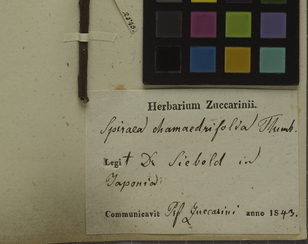 Herbarium Zuccarinii.
Spiraea chamaedrifolia Thunb.
Legit Dr Siebold in
Japonia
Communicavit Prf Zuccarini anno 1843.